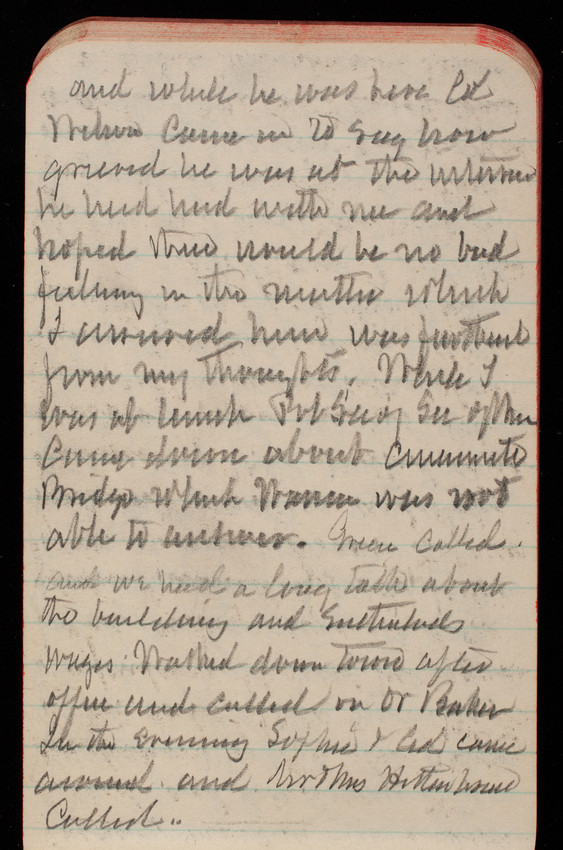 and while he was here Col
Wilson Came in to say how
grieved he was at the interview
he had had with me and
hoped there would be no bad
feeling in the matter which
I assured him was furthest
from my thoughts. While I
was at lunch Pvt Secy Sec of War
Came down about Cincinnati
Bridge which Warren was not
able to answer. Green called.
and we had a long talk about
the building and
wages. Walked down town after
office and called on Dr Baker
In the evening Sophie & Ced came
around and Mr & Mrs
Called..